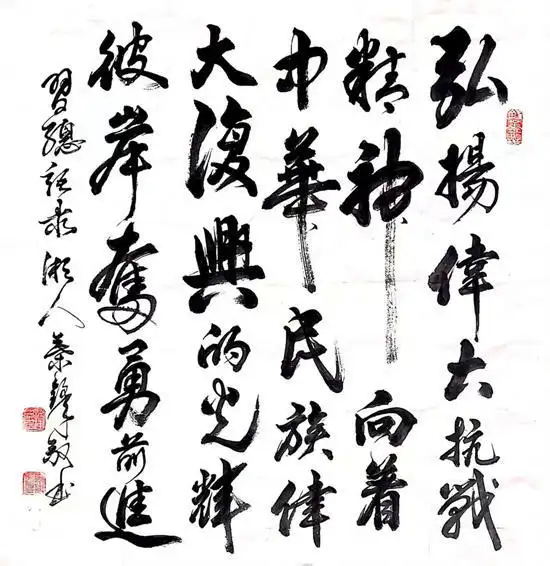 弘揚偉大抗戰
精神向着
中華民族偉
大復興的光輝
彼岸奮勇前進
習總記 湘人